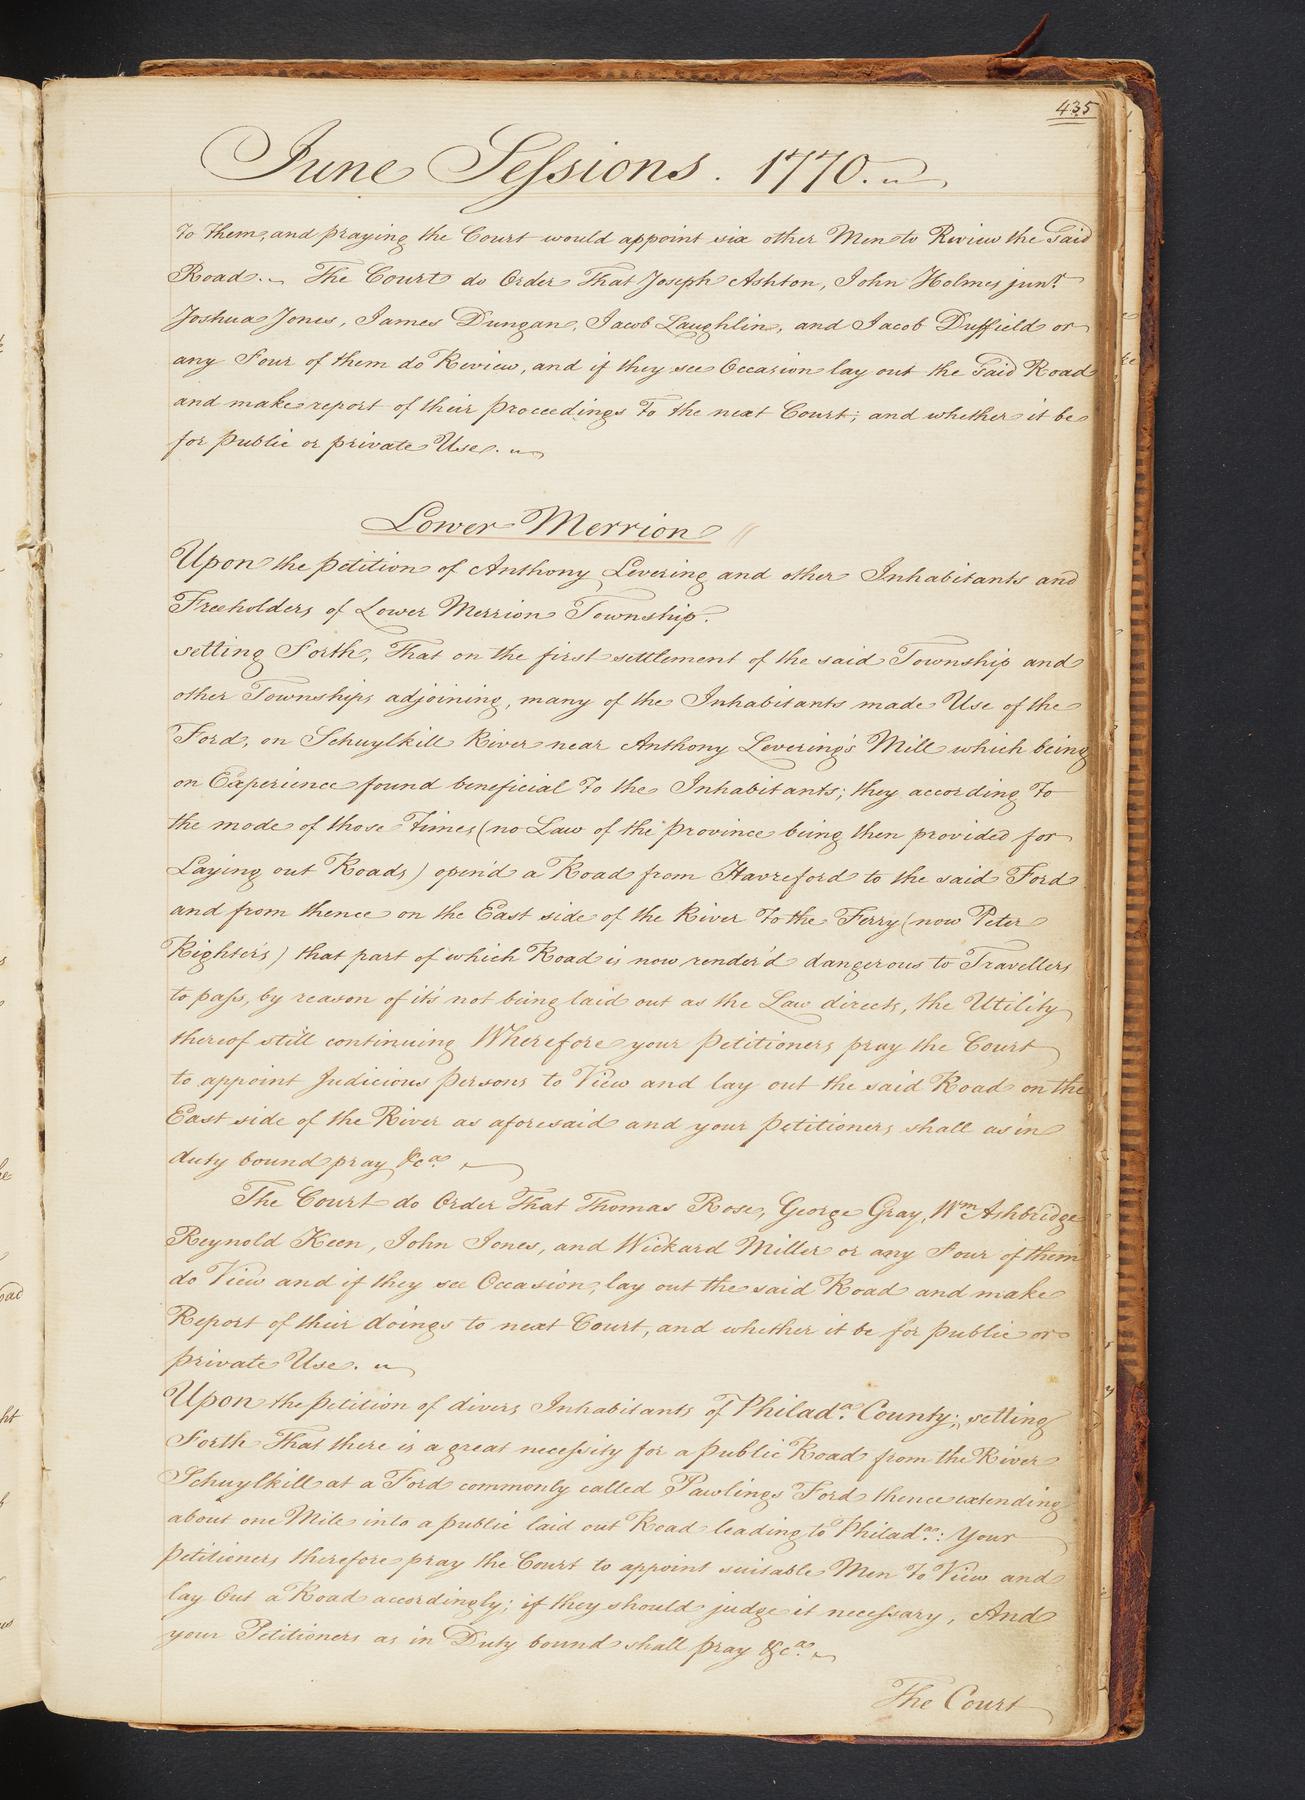 435
June Sessions. 1770.
to them, and praying the Court would appoint six other Men to Review the said
Road. The Court do Order That Joseph Ashton, John Holmes junr.
Joshua Jones, James Dungan, Jacob Laughlin, and Jacob Duffield or
any Four of them do Review, and if they see Occasion lay out the said Road
and make report of their proceedings To the next Court; and whether it be
for public or private Use.
Lower Merrion
Upon the petition of Anthony Levering and other Inhabitants and
Freeholders of Lower Merrion Township.
setting Forth, That on the first settlement of the said Township and
other Townships adjoining, many of the Inhabitants made Use of the
Ford, on Schuylkill River near Anthony Levering's Mill which being
on Experience found beneficial To the Inhabitants; they according To
the mode of those Times (no Law of the province being then provided for
Laying out Roads) open'd a Road from Havreford to the said Ford
and from thence on the East side of the River To the Ferry (now Peter
Righter's) that part of which Road is now render'd dangerous to Travellers
to pass, by reason of it's not being laid out as the Law directs, the Utility
thereof still continuing Wherefore your Petitioners pray the Court
to appoint Judicious persons to View and lay out the said Road on the
East side of the River as aforesaid and your Petitioners shall as in
duty bound pray &ca.
The Court do Order That Thomas Rose, George Gray, Wm Ashbridge
Reynold Keen, John Jones, and Wickard Miller or any Four of them
do View and if they see Occasion, lay out the said Road and make
Report of their doings to next Court, and whether it be for public or
private Use.
Upon the petition of divers Inhabitants of Philada. County; setting
Forth That there is a great necessity for a public Road from the River
Schuylkill at a Ford commonly called Pawlings Ford thence extending
about one Mile into a public laid out Road leading to Philada.: Your
Petitioners therefore pray the Court to appoint suitable Men To View and
lay Out a Road accordingly; if they should judge it necessary, And
your Petitioners as in Duty bound shall pray &ca.
The Court